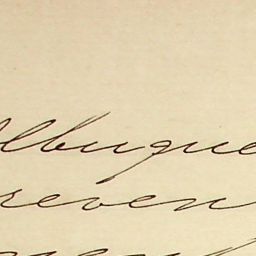 Albuque
reven